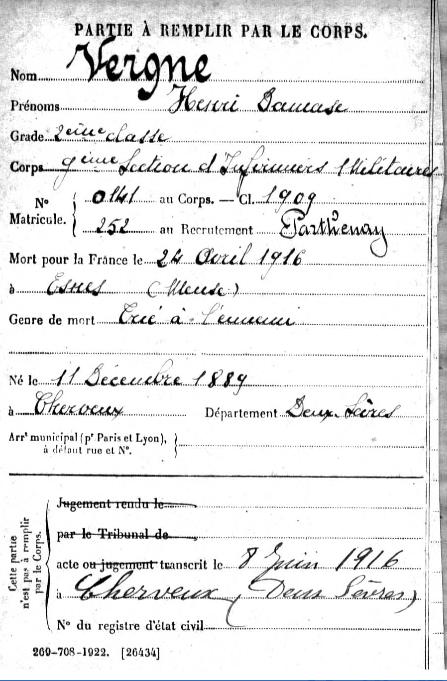 PARTIE À REMPLIR PAR LE CORPS.
Nom Vergne
Prénoms Henri Damase
Grade 2ème classe
Corps 9ème Section d'Infirmiers Militaires
N° Matricule. { 0141 au Corps. — Cl. 1909
252 au Recrutement Parthenay
Mort pour la France le 24 Avril 1916
à Esnes (Meuse)
Genre de mort Tué à l'ennemi
Né le 11 Décembre 1889
à Cherveux Département Deux-Sèvres
Arrt municipal (pr Paris et Lyon), à défaut rue et N°. }
Cette partie n'est pas à remplir par le Corps.
Jugement rendu le
par le Tribunal de
acte ou jugement transcrit le 8 Juin 1916
à Cherveux (Deux Sèvres)
N° du registre d'état civil
269-708-1922. [26434]